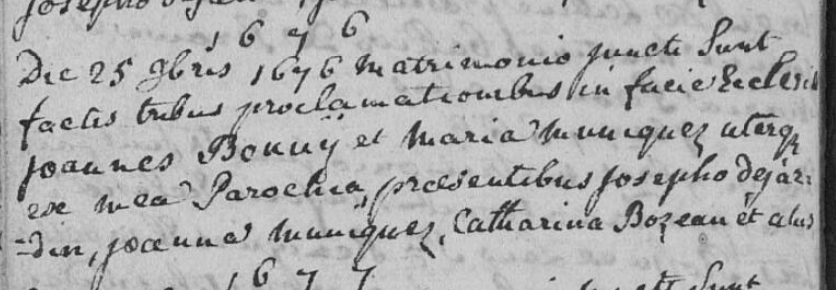 Josepho
1676
Die 25 9bris 1676 Matrimonio juncti Sunt
factis tribus proclamationibus in facie Ecclesiæ
Joannes Bonnij et Maria Munniquez uterq
exe mea Parochia, præsentibus Josepho Dejar=
=din, joanna Munniquez, Catharina Bozeau et alus
1677
Sunt